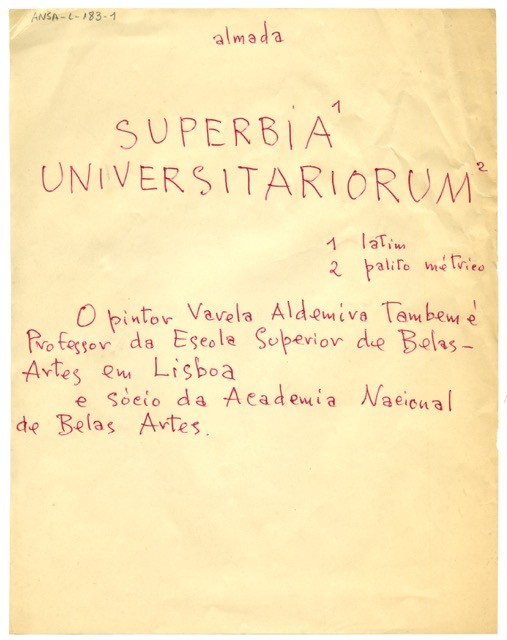 ANSA-L-183-1
almada
SUPERBIA¹
UNIVERSITARIORUM²
1 latim
2 palito métrico
O pintor Varela Aldemira Tambem é
Professor da Escola Superior de Belas-
Artes em Lisboa
e sòcio da Academia Nacional
de Belas Artes.